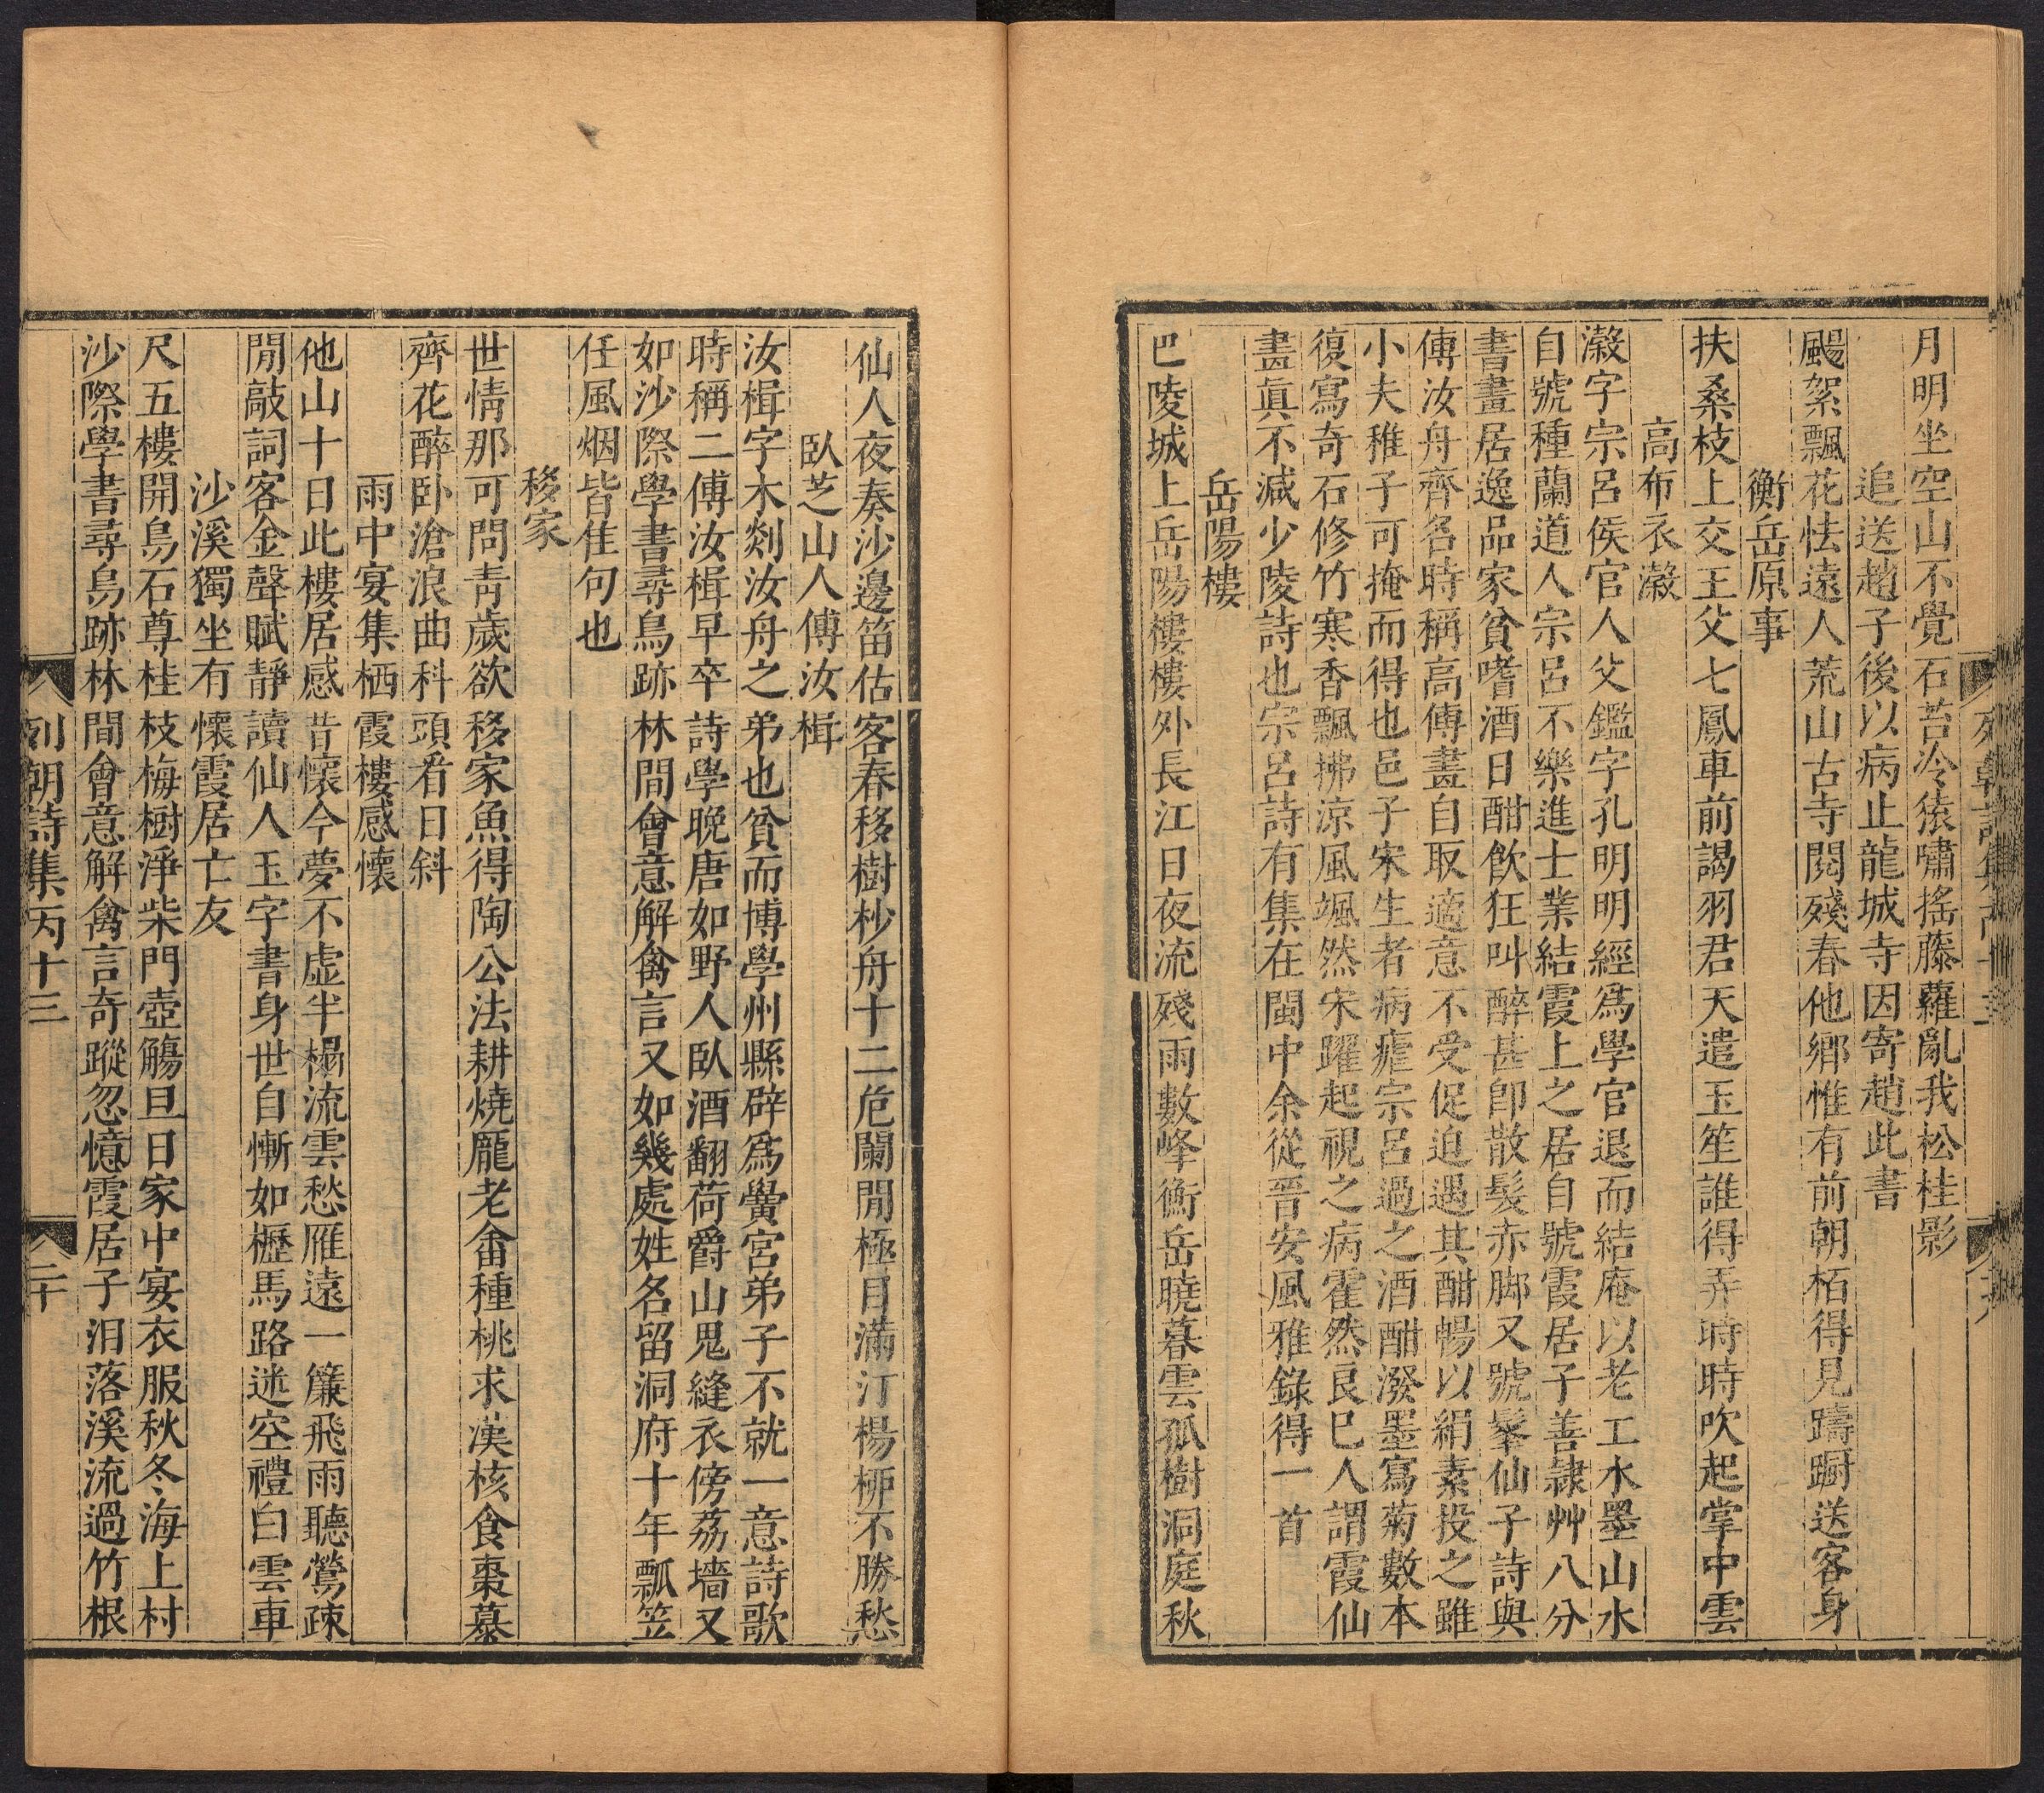 月明坐空山不覺石苔冷猿嘯搖藤蘿亂我松桂影
追送趙子後以病止龍城寺因寄趙此書
颺絮飄花怯遠人荒山古寺閱殘春他鄉惟有前朝栢得見躊蹰送客身
衡岳原事
扶桑枝上交王父七鳳車前謁羽君天遣玉笙誰得弄時時吹起掌中雲
高布衣瀔
瀔字宗呂侯官人父鑑字孔明明經爲學官退而結庵以老工水墨山水
自號種蘭道人宗呂不樂進士業結霞上之居自號霞居子善隸艸八分
書畫居逸品家貧嗜酒日酣飲狂叫醉甚卽散髮赤脚又號髼仙子詩與
傅汝舟齊名時稱高傅畫自取適意不受促迫遇其酣暢以絹素投之雖
小夫稚子可掩而得也邑子宋生者病瘧宗呂過之酒酣潑墨寫菊數本
復寫奇石修竹寒香飄拂涼風颯然宋躍起視之病霍然良巳人謂霞仙
畫眞不減少陵詩也宗呂詩有集在閩中余從晋安風雅錄得一首
岳陽樓
巴陵城上岳陽樓樓外長江日夜流殘雨數峰衡岳曉暮雲孤樹洞庭秋
仙人夜奏沙邊笛估客春移樹杪舟十二危闌閒極目滿汀楊桺不勝愁
臥芝山人傅汝楫
汝楫字木剡汝舟之弟也貧而博學州縣辟爲黌宮弟子不就一意詩歌
時稱二傅汝楫早卒詩學晚唐如野人臥酒翻荷爵山鬼縫衣傍荔墻又
如沙際學書尋鳥跡林間會意解禽言又如幾處姓名留洞府十年瓢笠
任風烟皆隹句也
移家
世情那可問靑歲欲移家魚得陶公法耕燒龎老畬種桃求漢核食棗慕
齊花醉卧滄浪曲科頭看日斜
雨中宴集栖霞樓感懷
他山十日此樓居感昔懷今夢不虛半榻流雲愁雁遠一簾飛雨聽鶯疎
閒敲詞客金聲賦靜讀仙人玉字書身世自慚如櫪馬路迷空禮白雲車
沙溪獨坐有懷霞居亡友
尺五樓開烏石尊桂枝梅樹淨柴門壺觴旦日家中宴衣服秋冬海上村
沙際學書尋鳥跡林間會意解禽言奇蹤忽憶霞居子泪落溪流過竹根
列朝詩集丙十三
二十